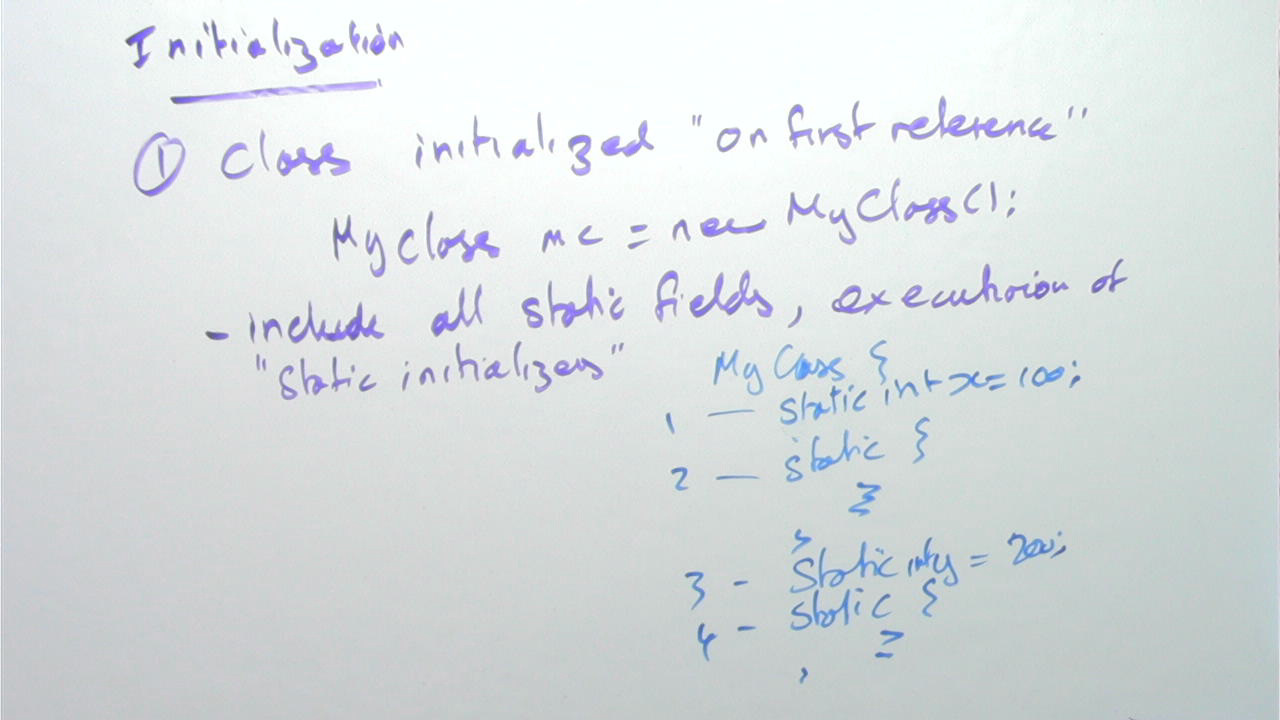 Initialization
① Class initialized "on first reference"
MyClass mc = new MyClass();
- include all static fields, execution of
"static initializers"
MyClass {
1 — static int x = 100;
2 — static {
}
}
3 - static int y = 200;
4 - static {
}